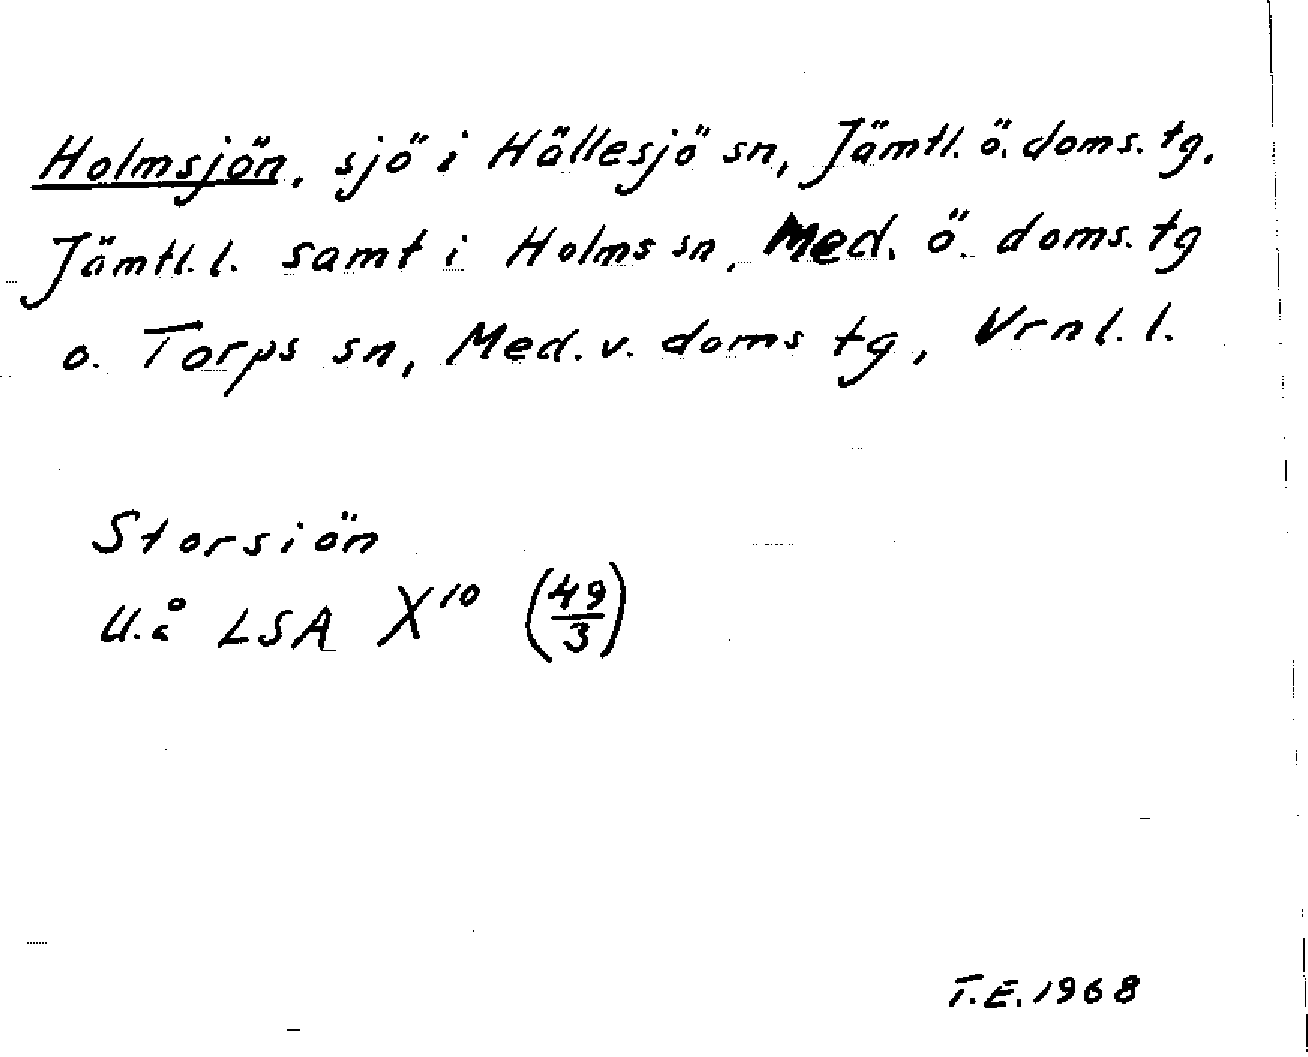 Holmsjön, sjö i Hällesjö sn, Jämtl. ö. doms. tg,
Jämtl. l. samt i Holms sn, Med. ö. doms. tg
o. Torps sn, Med. v. doms tg, Vrnl. l.
Storsiön
U.å LSA X¹⁰ (49/3)
T.E. 1968